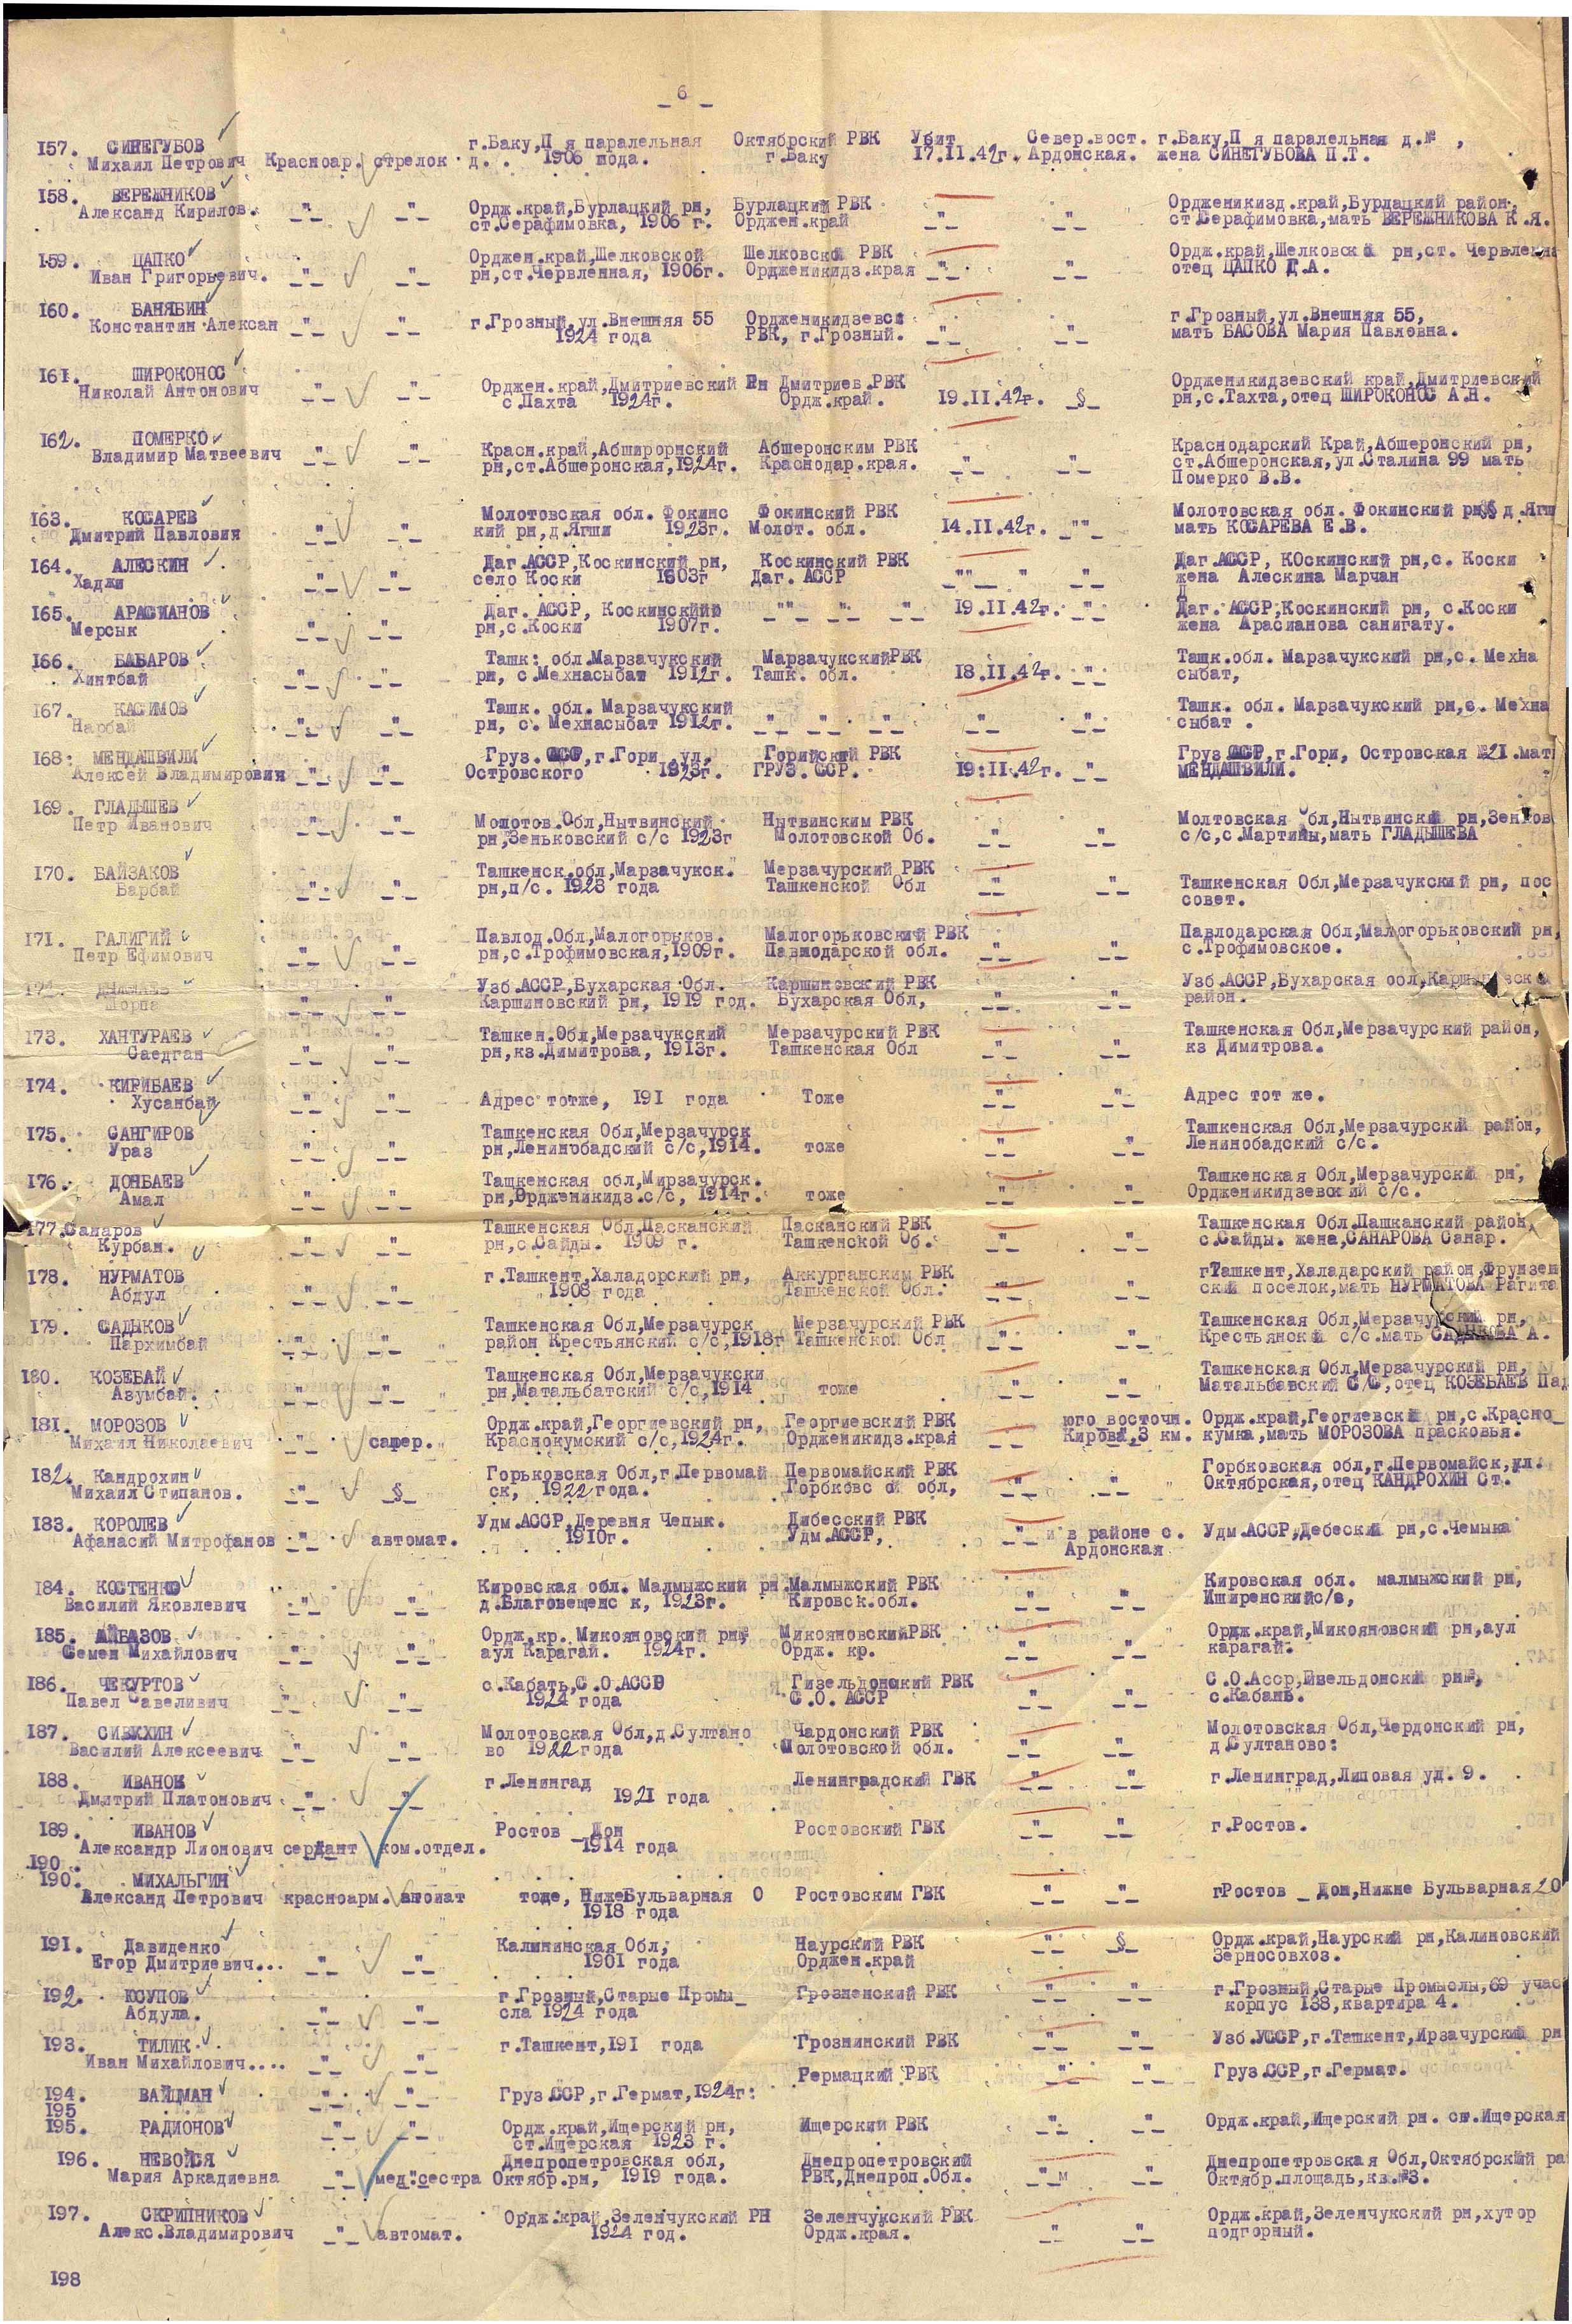 _ 6 _
157. СИНЕГУБОВ г.Баку,П я паралельная Октябрский РВК Убит Север.вост. г.Баку,П я паралельная д.№ ,
Михаил Петрович Красноар. стрелок д. . 1906 года. г.Баку 17.II.42г. Ардонская. жена СИНЕГУБОВА П.Т.
158. ВЕРЕЖНИКОВ Ордж.край,Бурлацкий рн, Бурлацкий РВК Орджениκизд.край,Бурлацкий район,
Александ Кирилов. _"_ _"_ ст.Серафимовка, 1906 г. Орджен.край _"_ _"_ ст.Серафимовка,мать ВЕРЕЖНИКОВА К.Я.
159. ЦАПКО Орджен.край,Шелковской Шелковско РВК Ордж.край,Шелковск рн,ст. Червленна
Иван Григорьевич. _"_ _"_ рн,ст.Червленная, 1906г. Ордженикидз.края _"_ _"_ отец ЦАПКО Г.А.
160. БАНЯБИН г.Грозный,ул.Внешняя 55 Ордженикидзевск г.Грозный,ул.Внешняя 55,
Константин Алексан _"_ _"_ 1924 года РВК, г.Грозный. _"_ _"_ мать БАСОВА Мария Павловна.
161. ШИРОКОНОС Орджен.край,Дмитриевский Рн Дмитриев.РВК Ордженикидзевский край,Дмитриевский
Николай Антонович _"_ _"_ с.Пахта 1924г. Ордж.край. 19.II.42г. _§_ рн,с.Тахта,отец ШИРОКОНОС А.Н.
162. ПОМЕРКО Красн.край,Абширорнский Абшеронским РВК Краснодарский Край,Абшеронский рн,
Владимир Матвеевич _"_ _"_ рн,ст.Абшеронская,1924г. Краснодар.края. _"_ _"_ ст.Абшеронская,ул.Сталина 99 мать
Померко В.В.
163. КОСАРЕВ Молотовская обл. Фокинс Фокинский РВК Молотовская обл. Фокинский рн д.Ягш
Дмитрий Павловия _"_ _"_ кий рн,д.Ягши 1923г. Молот. обл. 14.II.42г. _""_ мать КОСАРЕВА Е.В.
164. АЛЕСКИН Даг.АССР,Коскинский рн, Коскинский РВК Даг.АССР, КОскинский рн,с. Коски
Хаджи _"_ _"_ село Коски 1903г Даг. АССР _""_ _"_ _"_ жена Алескина Марчан
165. АРАСИАНОВ Даг. АССР, Коскинскийр _""_ _"_ _"_ 19.II.42г. _"_ Даг. АССР,Коскинский рн, с.Коски
Мерсык _"_ _"_ рн,с.Коски 1907г. жена Арасианова санигату.
166. БАБАРОВ Ташк: обл.Марзачукский МарзачукскийРВК Ташк.обл. Марзачукский рн,с. Мехна
Хинтбай _"_ _"_ рн, с.Мехнасыбат 1912г. Ташк. обл. 18.II.42г. _"_ сыбат,
167. КАСИМОВ Ташк. обл. Марзачукский Ташк. обл. Марзачукский рн,с. Мехна
Нарбай _"_ _"_ рн, с. Мехнасыбат 1912г. _"_ _"_ _"_ _"_ _"_ _"_ сыбат .
168: МЕНДАШВИЛИ Груз.ССР,г.Гори ,ул, Горийский РВК Груз.ССР,г.Гори, Островская №21.мат
Алексей Владимирович _"_ _"_ Островского 1923г. ГРУЗ. ССР. 19:II.42г. _"_ МЕНДАШВИЛИ.
169. ГЛАДЫШЕВ Мошотов.Обл,Нытвинский Нытвинским РВК Молтовская Обл,Нытвинский рн,Зеньков
Петр Иванович _"_ _"_ рн,Зеньковский с/с 1923г Молотовской Об. _"_ _"_ с/с,с.Мартины,мать ГЛАДЫШЕВА
170. БАЙЗАКОВ Ташкенск.обл,Марзачукск. Мерзачурский РВК
Барбай _"_ _"_ рн,п/с. 1923 года Ташкенской Обл _"_ _"_ Ташкенская Обл,Мерзачукский рн, пос
совет.
171. ГАЛИГИЙ Павлод.Обл,Малогорьков. Малогорьковский РВК Павлодарская Обл,Малогорьковский рн,
Петр Ефимович _"_ _"_ рн,с.Трофимовская,1909г. Павлодарской обл. _"_ _"_ с.Трофимовское.
Узб.АССР,Бухарская Обл. Каршиновский РВК Узб.АССР,Бухарская обл,
Шорпа _"_ _"_ Каршиновский рн, 1919 год. Бухарская Обл, _"_ _"_ район.
173. ХАНТУРАЕВ Ташкен.Обл,Мерзачукский Мерзачурский РВК Ташкенская Обл,Мерзачурский район,
Саедган _"_ _"_ рн,кз.Димитрова, 1913г. Ташкенская Обл _"_ _"_ кз Димитрова.
174. КИРИБАЕВ
Хусанбай _"_ _"_ Адрес тотже, 191 года Тоже _"_ _"_ Адрес тот же.
175. САНГИРОВ Ташкенская Обл,Мерзачурск Ташкенская Обл,Мерзачурский район,
Ураз _"_ _"_ рн,Ленинобадский с/с,1914. тоже _"_ _"_ Ленинобадский с/с.
176. ДОНБАЕВ Ташкенская обл,Мирзачурск. Ташкенская Обл,Мерзачурский рн,
Амал _"_ _"_ рн,Орджениκидз.с/с, 1914г. тоже _"_ _"_ Ордженикидзевский с/с.
177.Санаров Ташкенская Обл,Пасканский Пасканский РВК Ташкенская Обл.Пашканский район,
Курбан. _"_ _"_ рн,с.Сайды. 1909 г. Ташкенской Об. _"_ _"_ с.Сайды. жена,САНАРОВА Санар.
178. НУРМАТОВ г.Ташкент,Халадорский рн, Аккурганским РВК гТашкент,Халадарский район,Фрунзен
Абдул _"_ _"_ 1908 года Ташкенской Обл. _"_ _"_ ский поселок,мать НУРМАТОВА Рагита
179. САДЫКОВ Ташкенская Обл,Мерзачурск Мерзачурский РВК Ташкенская Обл,Мерзачурский рн,
Пархимбай _"_ _"_ район Крестьянский с/с,1918г Ташкенской Обл _"_ _"_ Крестьянск с/с.мать САДЫКОВА А.
180. КОЗЕБАЙ Ташкенская Обл,Мерзачукски Ташкенская Обл,Мерзачурский рн,
Азумбай. _"_ _"_ рн,Матальбатский с/с,1914 тоже _"_ _"_ Матальбавский С/С,отец КОЗЕБАЕВ Пад
181. МОРОЗОВ Ордж.край,Георгиевский рн, Георгиевский РВК юго восточн. Ордж.край,Геогиевск рн,с.Красно_
Михаил Николаевич _"_ сапер. Краснокумский с/с,1924г. Ордженикидз.края _"_ Кирова,3 км. кумка,мать МОРОЗОВА прасковья.
182. Кандрохин Горьковская Обл,г.Первомай Первомайский РВК Горбковская обл,г.Первомайск,ул.
Михаил Стипанов. _"_ _§_ ск, 1922 года. Горбковс обл, _"_ _"_ Октябрская,отец КАНДРОХИН Ст.
183. КОРОЛЕВ Удм.АССР,Деревня Чепык. Дибесский РВК _"_ и в районе с. Удм.АССР,Дебеский рн,с.Чемыка
Афанасий Митрофанов _"_ автомат. 1910г. Удм.АССР, Ардонская
184. КОСТЕНКО Кировская обл. Малмыжский рн.Малмыжский РВК Кировская обл. малмыжский рн,
Василий Яковлевич _"_ _"_ д.Благовещенс к, 1923г. Кировск.обл. _"_ _"_ Иширенскийс/с,
185. АЙБАЗОВ Ордж.кр. Микояновский рн МикояновскийРВК Ордж.край,Микояновский рн,аул
Семен Михайлович _"_ _"_ аул Карагай. 1924г. Ордж. кр. _"_ _"_ карагай.
186. ЧЕКУРТОВ с.Кабать,С.О.АССР Гизельдонский РВК С.О.Асср,Гизельдонский рн,
Павел Савеливич _"_ _"_ 1924 года С.О. АССР _"_ _"_ с.Кабань.
187. СИВКХИН Молотовская Обл,д.Султано Чардонский РВК Молотовская Обл,Чердонский рн,
Василий Алексеевич _"_ _"_ во 1922 года Молотовской обл. _"_ _"_ д.Султаново:
188. ИВАНОВ г.Ленингад Ленинградский ГВК _"_ _"_ г.Ленинград,Липовая ул. 9.
Дмитрий Платонович _"_ _"_ 1921 года
189. ИВАНОВ Ростов _Дон Ростовский ГВК _"_ _"_ г.Ростов.
Александр Лионович сержант ком.отдел. 1914 года
190
190. МИХАЛЬГИН
Александ Петрович красноарм. автомат тоже, НижеБульварная 0 Ростовским ГВК _"_ _"_ гРостов _ Дон,Нижне Бульварная 20
1918 года
191. Давиденко Калининская Обл, Наурский РВК _"_ _§_ Ордж.край,Наурский рн,Калиновский
Егор Дмитриевич... _"_ _"_ 1901 года Орджен.край Зерносовхоз.
192. ЮСУПОВ г.Грозный,Старые Промы_ Грозненский РВК _"_ _"_ г.Грозный,Старые Промыслы,69 учас
Абдула. _"_ _"_ сла 1924 года корпус 138,квартира 4.
193. ТИЛИК. г.Ташкент,191 года Грознинский РВК _"_ _"_ Узб.УССР,г.Ташкент,Ирзачурский рн
Иван Михайлович.... _"_ _"_
194. ВАЙЦМАН _"_ _"_ Груз.ССР,г.Гермат,1924г: Рермацкий РВК _"_ _"_ Груз.ССР,г.Гермат.
195
195. РАДИОНОВ _"_ _"_ Ордж.край,Ищерский рн, Ищерский РВК _"_ _"_ Ордж.край,Ищерский рн. ст.Ищерская
ст.Ищерская 1923 г.
196. НЕВОЙСЯ Днепропетровская обл, Днепропетровский Днепропетровская Обл,Октябрский ра
Мария Аркадиевна _"_ мед.сестра Октябр.рн, 1919 года. РВК,Днепроп.Обл. _"_ м _"_ Октябр.площадь,кв.№3.
197. СКРИПНИКОВ Ордж.край,Зеленчукский РН Зеленчукский РВК Ордж.край,Зеленчукский рн,хутор
Алекс.Владимирович _"_ автомат. 1924 год. Ордж.края. _"_ _"_ подгорный.
198